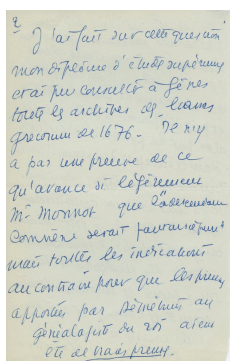 2
J'ai fait sur cette question
mon diplôme d'études supérieures
et ai pu consulter à Gênes
toutes les archives des
de 1676. Il n'y
a pas une preuve de ce
qu'avance si légèrement
Mr Monnot que la descendance
Comnène serait
mais toutes les indications
au contraire pour que les preuves
apportées par Démétrius au
généalogiste du roi aient
été de vraies preuves.